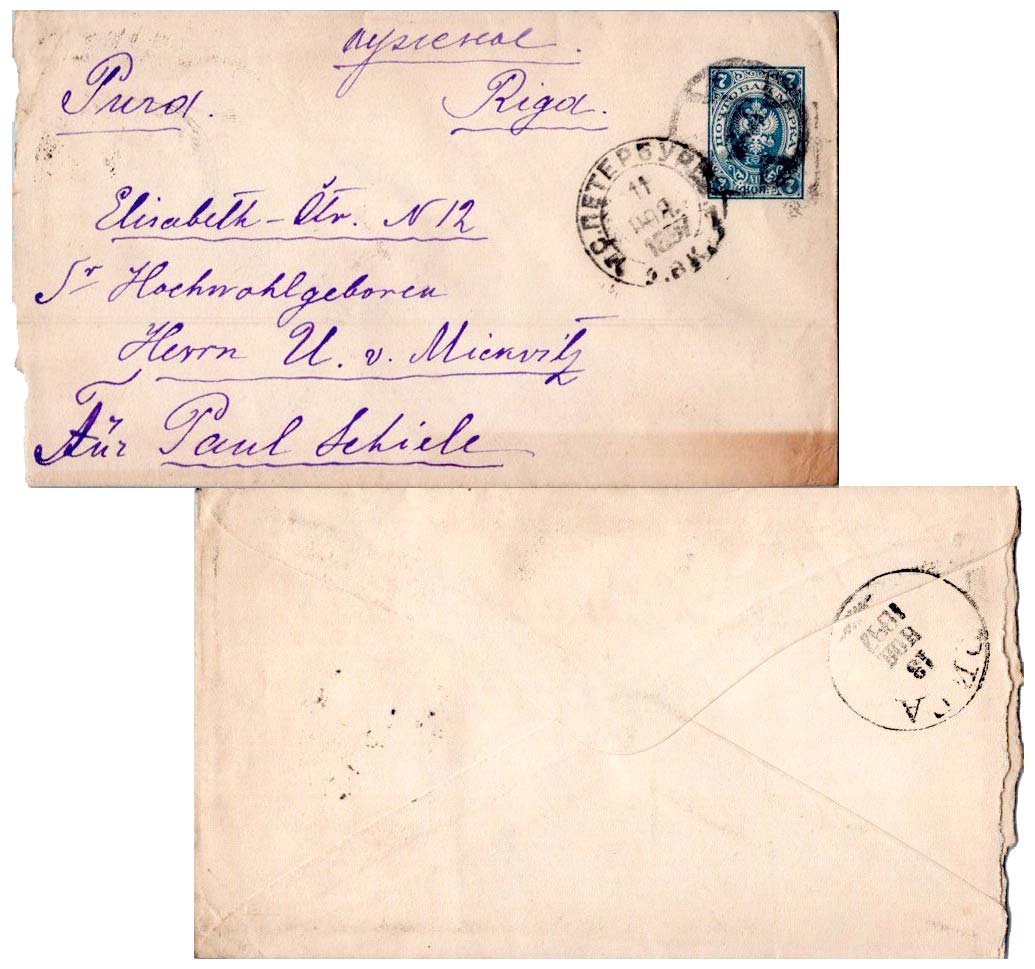 нужное.
Рига. Riga.
Elisabeth-Str. N 12
Sr Hochwohlgeboren
Herrn U. v. Mickvitz
Für Paul Schiele
7 7
ПОЧТОВАЯ МАРКА
7 КОП. 7
С.ПЕТЕРБУРГ
11
РИГА
13